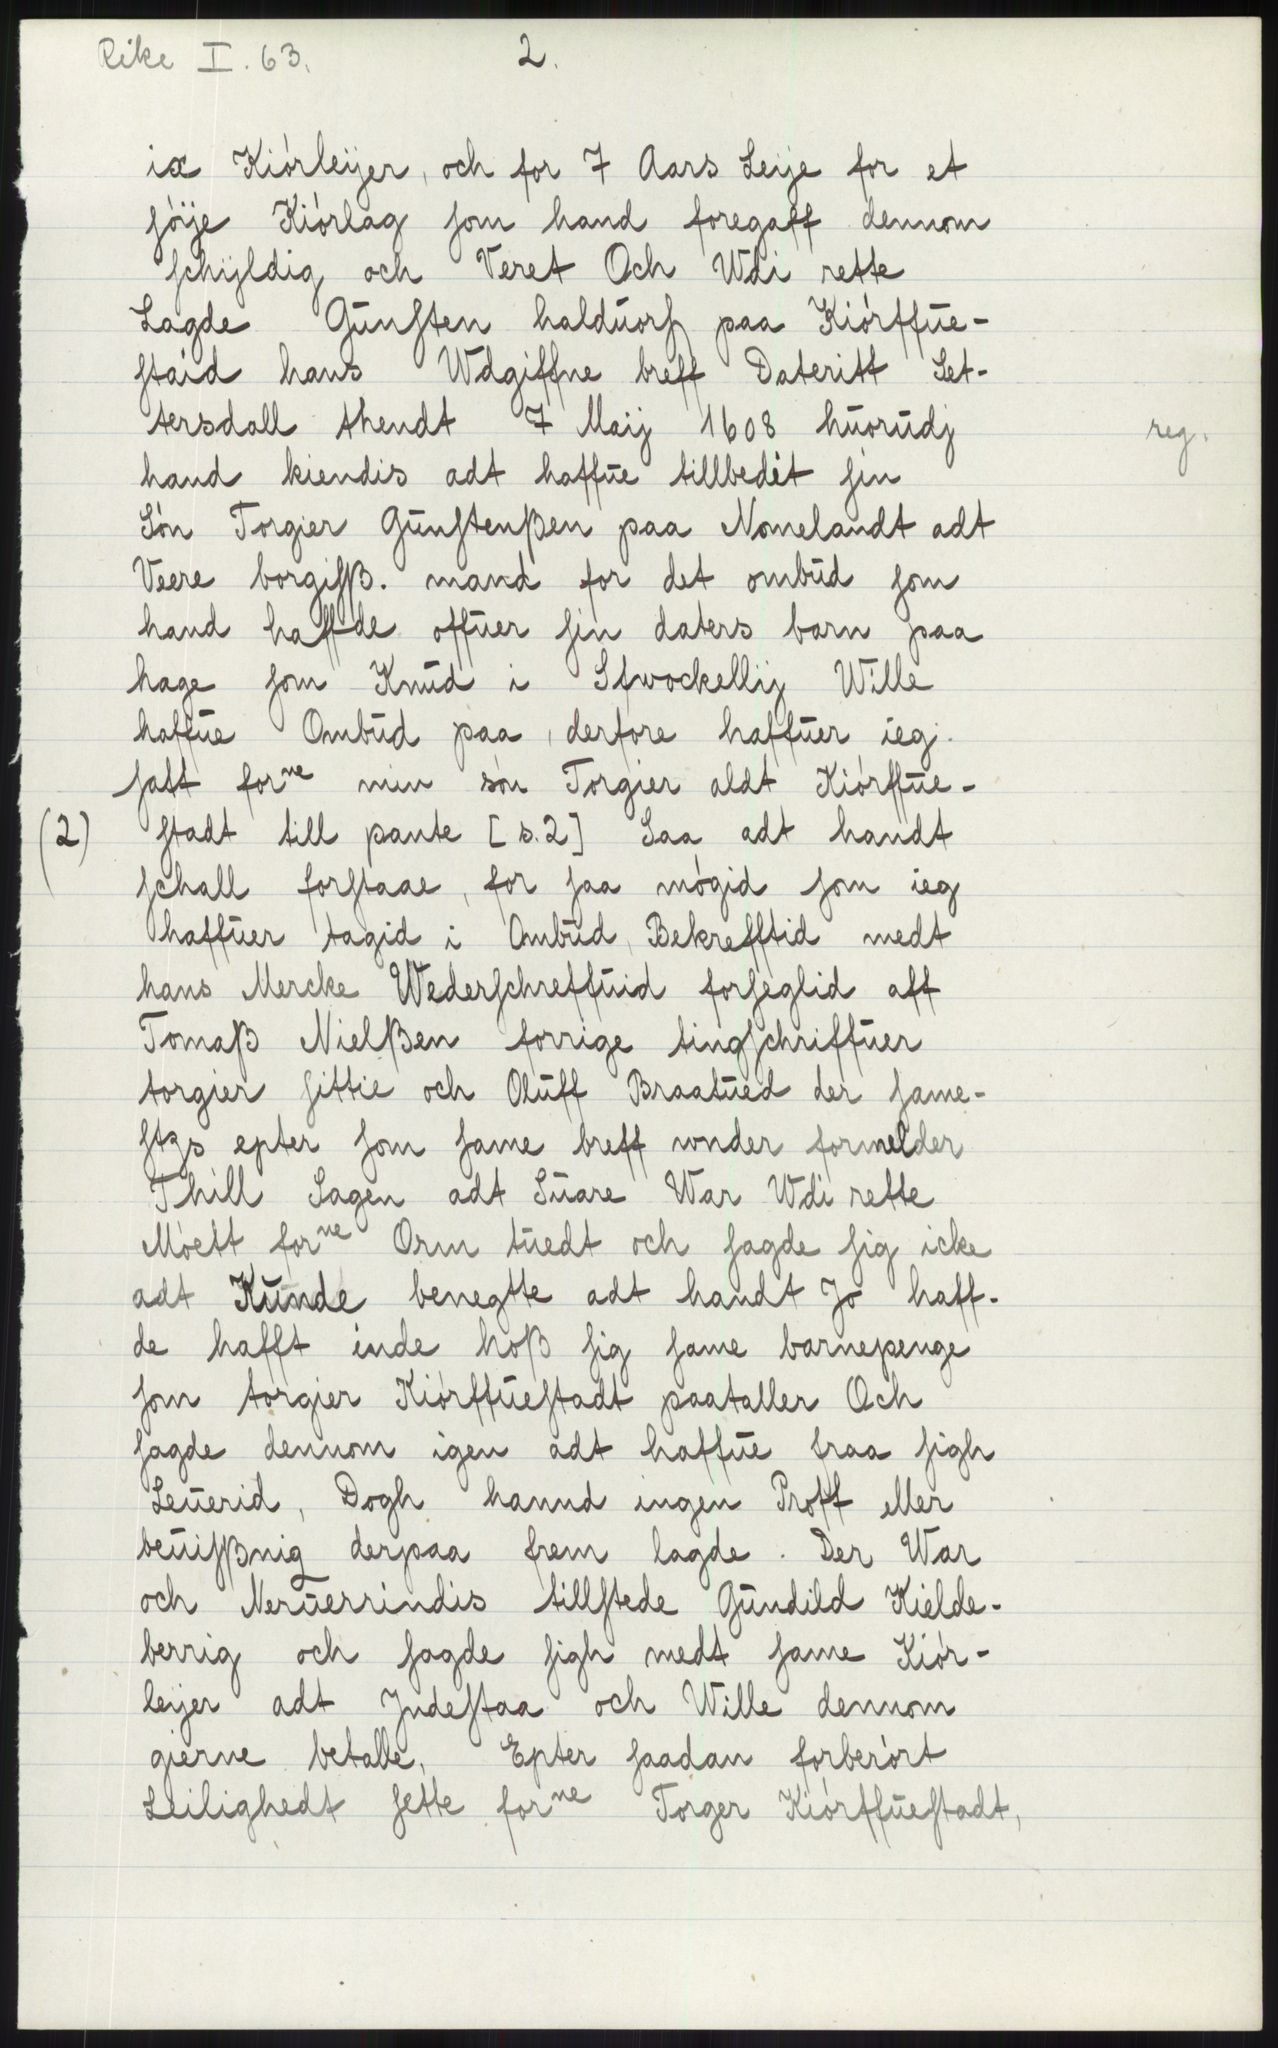 Rike I. 63.
2.
ix Kiórleijer, och for 7 Aars Leije for et
sóije Kiórlag som hand foregaff dennom
schijldig och Veret Och Wdi rette
Lagde Gunsten halduors paa Kiórffue-
stáid hans Wdgiffne breff Dateritt Set-
tersdall thendt 7 Maij 1608 huorudj reg.
hand kiendis adt haffue tillbedét sin
Són Torgier Gunstenßen paa Nomelandt adt
Veere borgisß. mand for det ombud som
hand haffde offuer sin daters barn paa
hage som Knud i Stwockellij Wille
haffue Ombud paa, derfore haffuer ieg
satt forne min són Torgier aldt Kiórffue-
(2) stadt till pante [s.2] Saa adt handt
schall forstaae, for saa mógid som ieg
haffuer tagid i Ombud, Bekrefftid medt
hans Mercke Wederschreffuid forseglid aff
Tomaß Nielßen forrige tingschriffuer
torgier sittie och Oluff Braatued der same-
stzs epter som same breff wnder formelder
Thill Sagen adt Suare War Wdi rette
Móett forne Orm tuedt och sagde sig icke
adt Kunde benegtte adt handt Jo haff-
de hafft inde hoß sig same barnepenge
som torgier Kiórffuestadt paataller Och
sagde dennom igen adt haffue fraa sigh
Leuerid, Dogh hannd ingen Proff eller
beuisßnig derpaa frem lagde. Der War
och Neruerrindis tillstede Gundild Kielde-
berrig och sagde sigh medt same Kiór-
leijer adt Jndestaa och Wille dennom
gierne betalle, Epter saadan forberórt
Leilighedt sette forne Torger Kiórffuestadt,